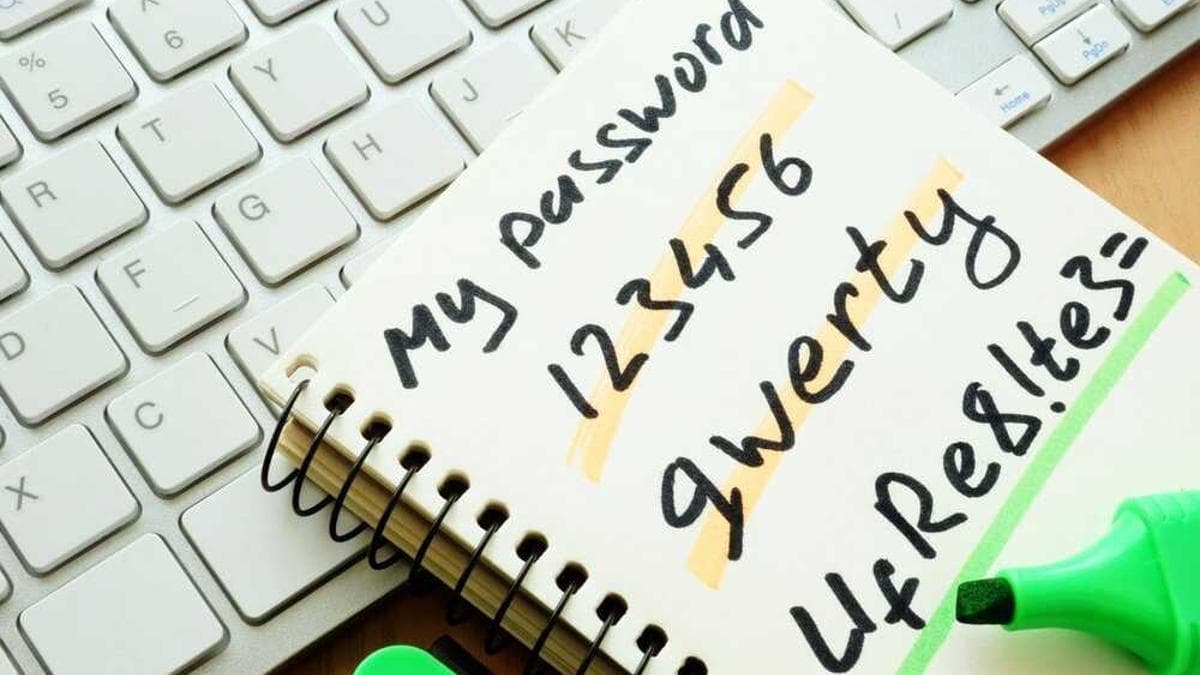 My password
123456
qwerty
UfRe8!te3=
6
U
K
/
PgUp
PgDn
%
5
Y
J
Home
T
H
R
G
F
D
V
C
X